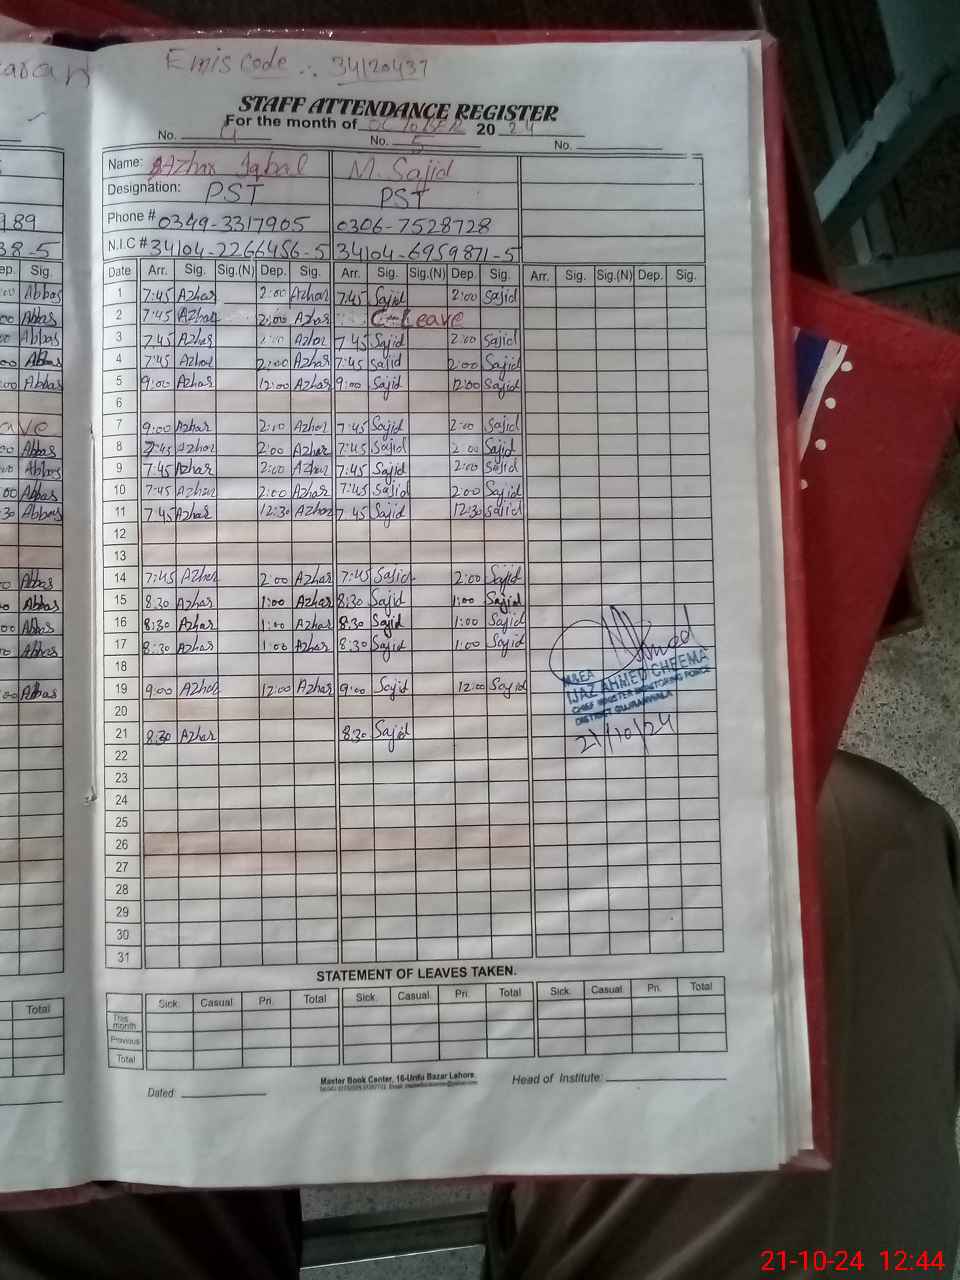 Emis code :. 34120437
STAFF ATTENDANCE REGISTER
For the month of OCTOBER 20 24
No. 4 No. 5 No.
Name: Azhar Iqbal M. Sajid
Designation: PST PST
Phone # 0349-3317905 0306-7528728
N.I.C # 34104-2266456-5 34104-6959871-5
Date Arr. Sig. Sig.(N) Dep. Sig. Arr. Sig. Sig.(N) Dep. Sig. Arr. Sig. Sig.(N) Dep. Sig.
1 7:45 Azhar 2:00 Azhar 7:45 Sajid 2:00 Sajid
2 7:45 Azhar 2:00 Azhar C-Leave
3 7:45 Azhar 2:00 Azhar 7:45 Sajid 2:00 Sajid
4 7:45 Azhar 2:00 Azhar 7:45 Sajid 2:00 Sajid
5 9:00 Azhar 12:00 Azhar 9:00 Sajid 12:00 Sajid
6
7 9:00 Azhar 2:00 Azhar 7:45 Sajid 2:00 Sajid
8 7:45 Azhar 2:00 Azhar 7:45 Sajid 2:00 Sajid
9 7:45 Azhar 2:00 Azhar 7:45 Sajid 2:00 Sajid
10 7:45 Azhar 2:00 Azhar 7:45 Sajid 2:00 Sajid
11 7:45 Azhar 12:30 Azhar 7:45 Sajid 12:30 Sajid
12
13
14 7:45 Azhar 2:00 Azhar 7:45 Sajid 2:00 Sajid
15 8:30 Azhar 1:00 Azhar 8:30 Sajid 1:00 Sajid
16 8:30 Azhar 1:00 Azhar 8:30 Sajid 1:00 Sajid
17 8:30 Azhar 1:00 Azhar 8:30 Sajid 1:00 Sajid
18
19 9:00 Azhar 12:00 Azhar 9:00 Sajid 12:00 Sajid
20
21 8:30 Azhar 8:30 Sajid
22
23
24
25
26
27
28
29
30
31
M&EA
IJAZ AHMED CHEEMA
CHIEF MINISTER MONITORING FORCE
DISTRICT GUJRANWALA
21/10/24
STATEMENT OF LEAVES TAKEN.
Sick. Casual Pri. Total Sick. Casual Pri. Total Sick. Casual Pri. Total
This month
Previous
Total
Master Book Center, 16-Urdu Bazar Lahore.
Dated: Head of Institute:
21-10-24 12:44